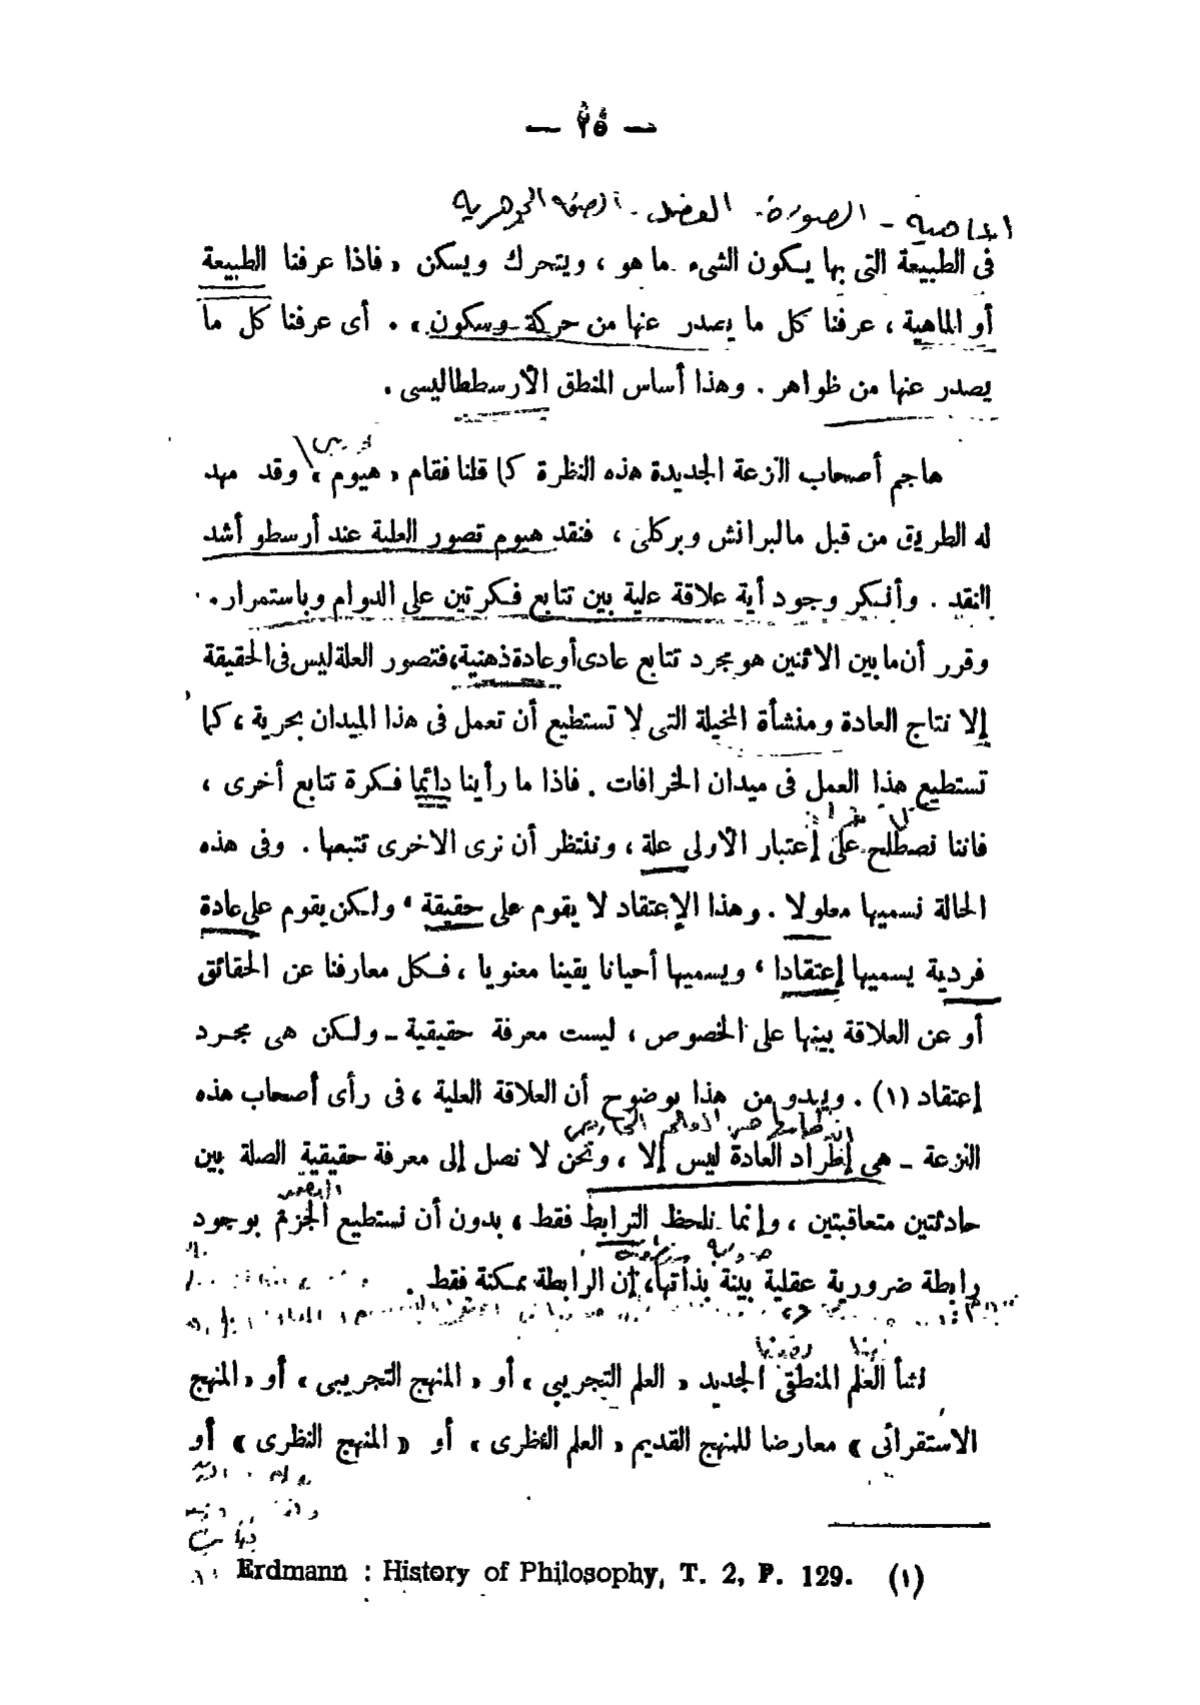 — ٣٥ —
الماهية - الصورة - الفصل - الصفة الجوهرية
فى الطبيعة التى بها يكون الشىء ما هو ، ويتحرك ويسكن « فاذا عرفنا الطبيعة
أو الماهية ، عرفنا كل ما يصدر عنها من حركة وسكون » . أى عرفنا كل ما
يصدر عنها من ظواهر . وهذا أساس المنطق الأرسططاليسى .
هاجم أصحاب النزعة الجديدة هذه النظرة كما قلنا فقام « هيوم » وقد مهد
له الطريق من قبل مالبرانش وبركلى ، فنقد هيوم تصور العلية عند أرسطو أشد
النقد . وأنكر وجود أية علاقة علية بين تتابع فكرتين على الدوام وباستمرار .
وقرر أن ما بين الاثنين هو مجرد تتابع عادى أو عادة ذهنية، فتصور العلة ليس فى الحقيقة
إلا نتاج العادة ومنشأة المخيلة التى لا تستطيع أن تعمل فى هذا الميدان بحرية ، كما
تستطيع هذا العمل فى ميدان الخرافات . فاذا ما رأينا دائما فكرة تتابع أخرى ،
فاننا نصطلح على إعتبار الأولى علة ، وننتظر أن نرى الاخرى تتبعها . وفى هذه
الحالة نسميها معلولا . وهذا الإعتقاد لا يقوم على حقيقة ، ولكن يقوم على عادة
فردية يسميها إعتقادا ، ويسميها أحيانا يقينا معنويا ، فكل معارفنا عن الحقائق
أو عن العلاقة بينها على الخصوص ، ليست معرفة حقيقية - ولكن هى مجرد
إعتقاد (١) . ويبدو من هذا بوضوح أن العلاقة العلية ، فى رأى أصحاب هذه
النزعة - هى إطراد العادة ليس إلا ، ونحن لا نصل إلى معرفة حقيقية الصلة بين
حادثتين متعاقبتين ، وإنما نلحظ الترابط فقط ، بدون أن نستطيع الجزم بوجود
رابطة ضرورية عقلية بينة بذاتها، إن الرابطة ممكنة فقط .
نشأ العلم المنطقى الجديد « العلم التجريبى » أو « المنهج التجريبى » أو « المنهج
الاستقرائى » معارضا للمنهج القديم « العلم النظرى » أو « المنهج النظرى » أو
Erdmann : History of Philosophy, T. 2, P. 129. (١)